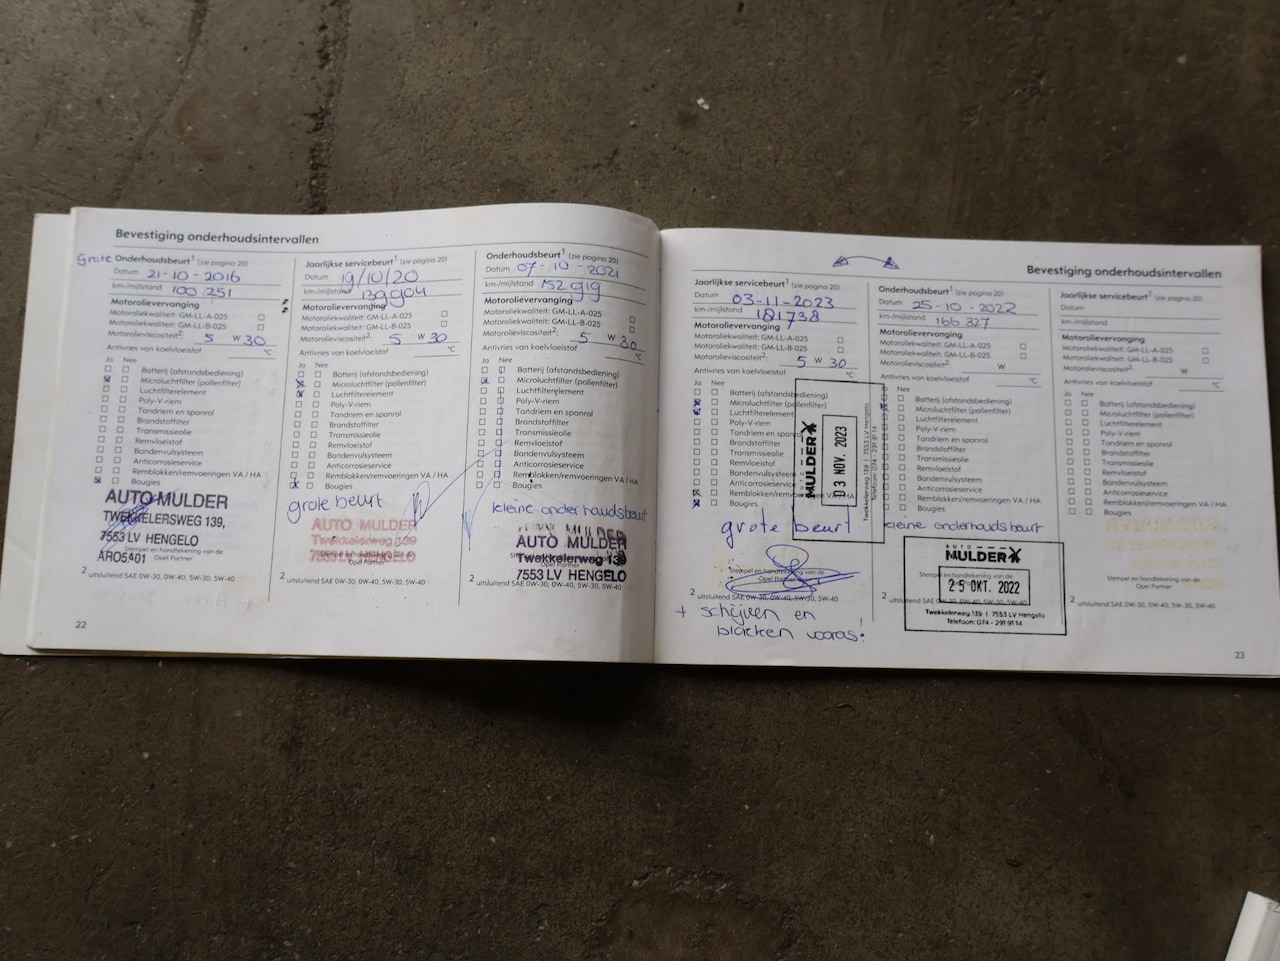 Bevestiging onderhoudsintervallen
Grote Onderhoudsbeurt¹ (zie pagina 20)
Datum 21-10-2016
km-/mijlstand 100 251
Motorolievervanging
Motoroliekwaliteit: GM-LL-A-025
Motoroliekwaliteit: GM-LL-B-025
Motorolieviscositeit²: 5 W 30
Antivries van koelvloeistof °C
Ja Nee
Batterij (afstandsbediening)
Microluchtfilter (pollenfilter)
Luchtfilterelement
Poly-V-riem
Tandriem en spanrol
Brandstoffilter
Transmissieolie
Remvloeistof
Bandenvulsysteem
Anticorrosieservice
Remblokken/remvoeringen VA / HA
Bougies
AUTO MULDER
TWEKKELERSWEG 139,
7553 LV HENGELO
ARO5401
Stempel en handtekening van de
Opel Partner
2 uitsluitend SAE 0W-30, 0W-40, 5W-30, 5W-40
22
Jaarlijkse servicebeurt¹ (zie pagina 20)
Datum 19/10/20
km-/mijlstand 139904
Motorolievervanging
Motoroliekwaliteit: GM-LL-A-025
Motoroliekwaliteit: GM-LL-B-025
Motorolieviscositeit²: 5 W 30
Antivries van koelvloeistof °C
Ja Nee
Batterij (afstandsbediening)
Microluchtfilter (pollenfilter)
Luchtfilterelement
Poly-V-riem
Tandriem en spanrol
Brandstoffilter
Transmissieolie
Remvloeistof
Bandenvulsysteem
Anticorrosieservice
Remblokken/remvoeringen VA / HA
Bougies
grote beurt
AUTO MULDER
Twekkelerweg 139
7553 LV HENGELO
Stempel en handtekening van de
Opel Partner
2 uitsluitend SAE 0W-30, 0W-40, 5W-30, 5W-40
Onderhoudsbeurt¹ (zie pagina 20)
Datum 07-10-2021
km-/mijlstand 152 919
Motorolievervanging
Motoroliekwaliteit: GM-LL-A-025
Motoroliekwaliteit: GM-LL-B-025
Motorolieviscositeit²: 5 W 30
Antivries van koelvloeistof °C
Ja Nee
Batterij (afstandsbediening)
Microluchtfilter (pollenfilter)
Luchtfilterelement
Poly-V-riem
Tandriem en spanrol
Brandstoffilter
Transmissieolie
Remvloeistof
Bandenvulsysteem
Anticorrosieservice
Remblokken/remvoeringen VA / HA
Bougies
kleine onderhoudsbeurt
AUTO MULDER
Twekkelerweg 139
7553 LV HENGELO
Stempel en handtekening van de
2 uitsluitend SAE 0W-30, 0W-40, 5W-30, 5W-40
Bevestiging onderhoudsintervallen
Jaarlijkse servicebeurt¹ (zie pagina 20)
Datum 03-11-2023
km-/mijlstand 181738
Motorolievervanging
Motoroliekwaliteit: GM-LL-A-025
Motoroliekwaliteit: GM-LL-B-025
Motorolieviscositeit²: 5 W 30
Antivries van koelvloeistof °C
Ja Nee
Batterij (afstandsbediening)
Microluchtfilter (pollenfilter)
Luchtfilterelement
Poly-V-riem
Tandriem en spanrol
Brandstoffilter
Transmissieolie
Remvloeistof
Bandenvulsysteem
Anticorrosieservice
Remblokken/remvoeringen VA / HA
Bougies
AUTO
MULDER
03 NOV. 2023
Twekkelerweg 139 | 7553 LV Hengelo
Telefoon: 074 - 291 91 14
grote beurt
Stempel en handtekening van de
Opel Partner
2 uitsluitend SAE 0W-30, 0W-40, 5W-30, 5W-40
+ schijven en
blokken vooras!
Onderhoudsbeurt¹ (zie pagina 20)
Datum 25-10-2022
km-/mijlstand 166 327
Motorolievervanging
Motoroliekwaliteit: GM-LL-A-025
Motoroliekwaliteit: GM-LL-B-025
Motorolieviscositeit²: W
Antivries van koelvloeistof °C
Ja Nee
Batterij (afstandsbediening)
Microluchtfilter (pollenfilter)
Luchtfilterelement
Poly-V-riem
Tandriem en spanrol
Brandstoffilter
Transmissieolie
Remvloeistof
Bandenvulsysteem
Anticorrosieservice
Remblokken/remvoeringen VA / HA
Bougies
kleine onderhoudsbeurt
AUTO
MULDER
Stempel en handtekening van de
25 OKT. 2022
2 uitsluitend SAE 0W-30, 0W-40, 5W-30, 5W-40
Twekkelerweg 139 | 7553 LV Hengelo
Telefoon: 074 - 291 91 14
Jaarlijkse servicebeurt¹ (zie pagina 20)
Datum
km-/mijlstand
Motorolievervanging
Motoroliekwaliteit: GM-LL-A-025
Motoroliekwaliteit: GM-LL-B-025
Motorolieviscositeit²: W
Antivries van koelvloeistof °C
Ja Nee
Batterij (afstandsbediening)
Microluchtfilter (pollenfilter)
Luchtfilterelement
Poly-V-riem
Tandriem en spanrol
Brandstoffilter
Transmissieolie
Remvloeistof
Bandenvulsysteem
Anticorrosieservice
Remblokken/remvoeringen VA / HA
Bougies
Stempel en handtekening van de
Opel Partner
2 uitsluitend SAE 0W-30, 0W-40, 5W-30, 5W-40
23